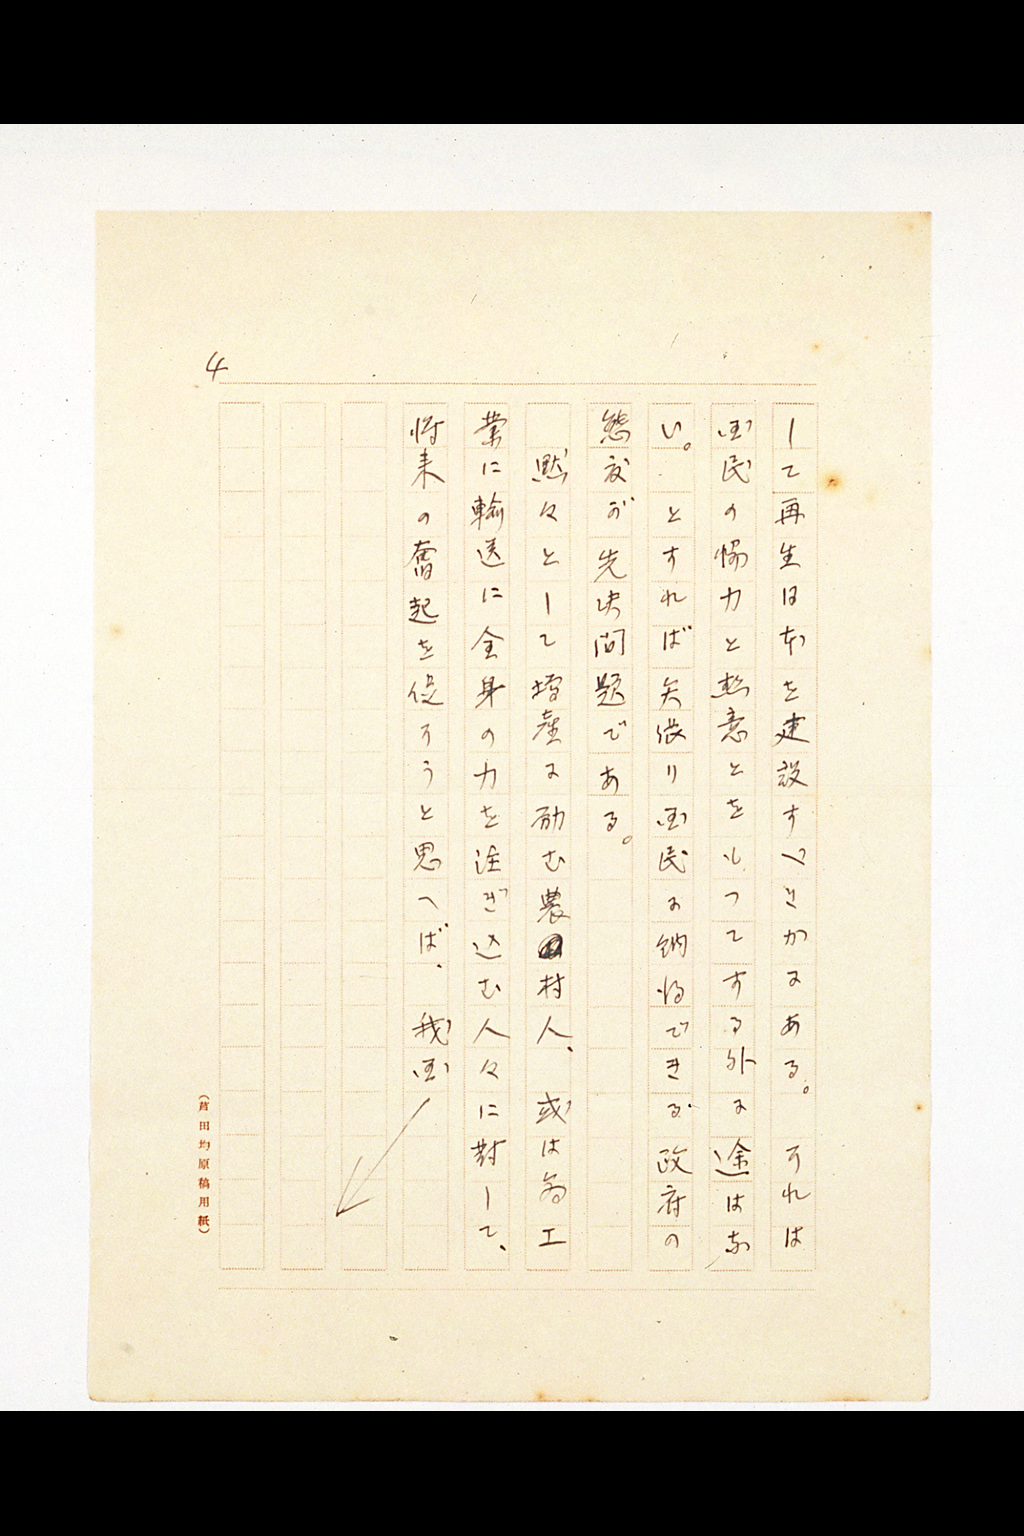 4
して再生日本を建設すべきかにある。それは
国民の協力と熱意とをもつてする外に途はな
い。とすれば矢張り国民に納得できる政府の
態度が先決問題である。
黙々として増産に励む農村人、或は商工
業に輸送に全身の力を注ぎ込む人々に対して、
将来の奮起を促そうと思へば、我国
(芦田均原稿用紙)